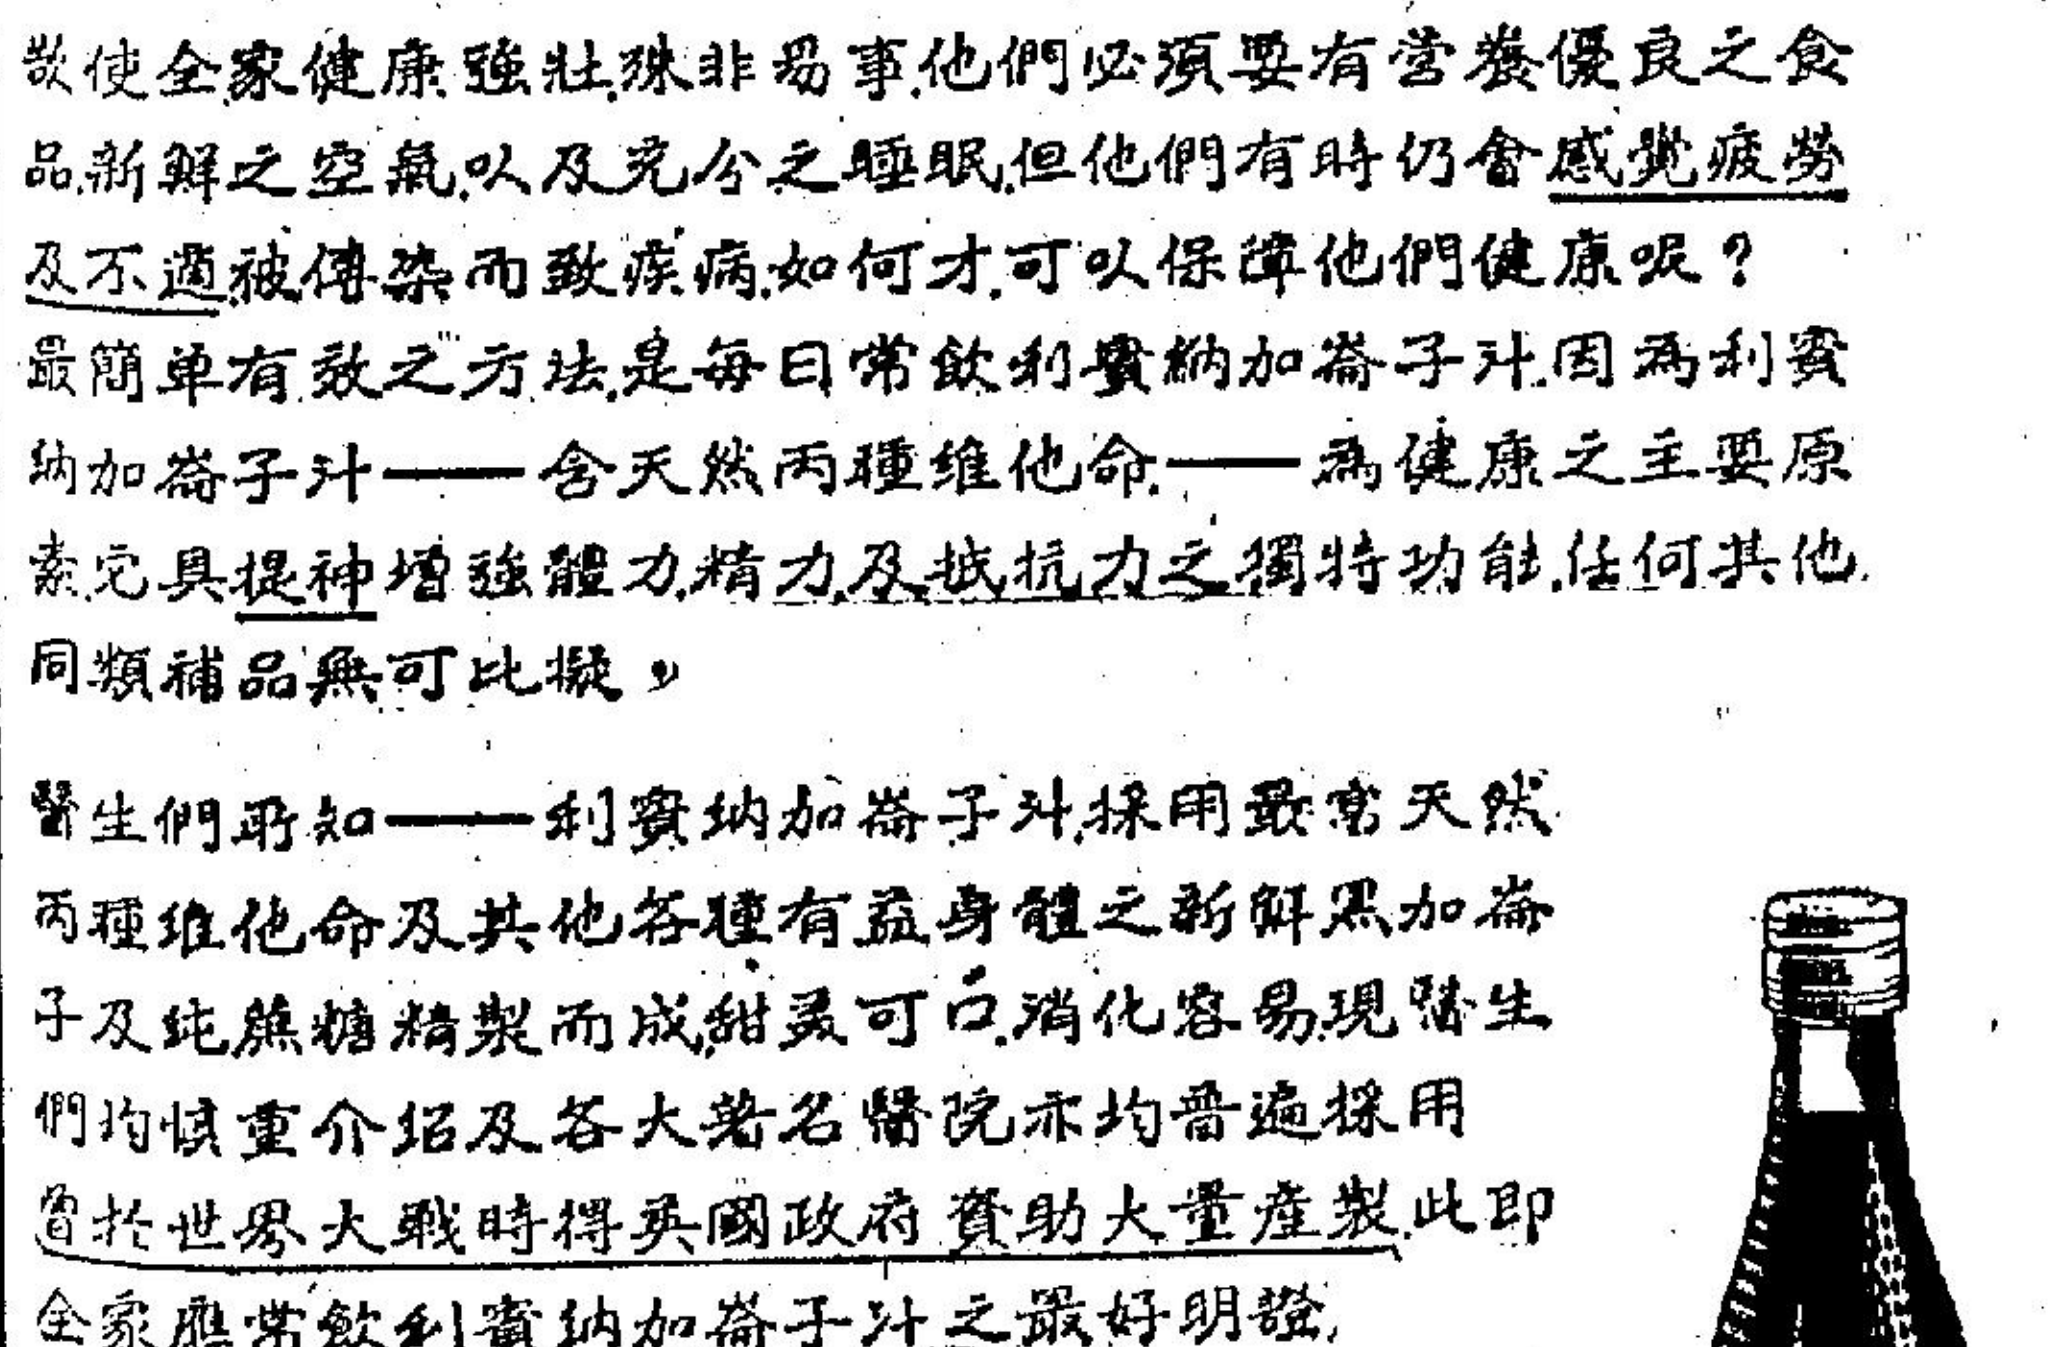 欲使全家健康強壯.殊非易事.他們必須要有營養優良之食
品.新鮮之空氣.以及充分之睡眠.但他們有時仍會感覺疲勞
及不適.被傳染而致疾病.如何才可以保障他們健康呢?
最簡單有效之方法.是每日常飲利賓納加崙子汁.因為利賓
納加崙子汁——含天然丙種維他命.——為健康之主要原
素.完具提神增強體力.精力.及抵抗力之獨特功能.任何其他
同類補品無可比擬,,
醫生們所知——利賓納加崙子汁.採用最富天然
丙種維他命及其他各種有益身體之新鮮黑加崙
子及純蔗糖精製而成.甜美可口.消化容易.現醫生
們均慎重介紹及各大著名醫院亦均普遍採用
曾於世界大戰時得英國政府資助大量產製.此即
全家應常飲利賓納加崙子汁之最好明證,